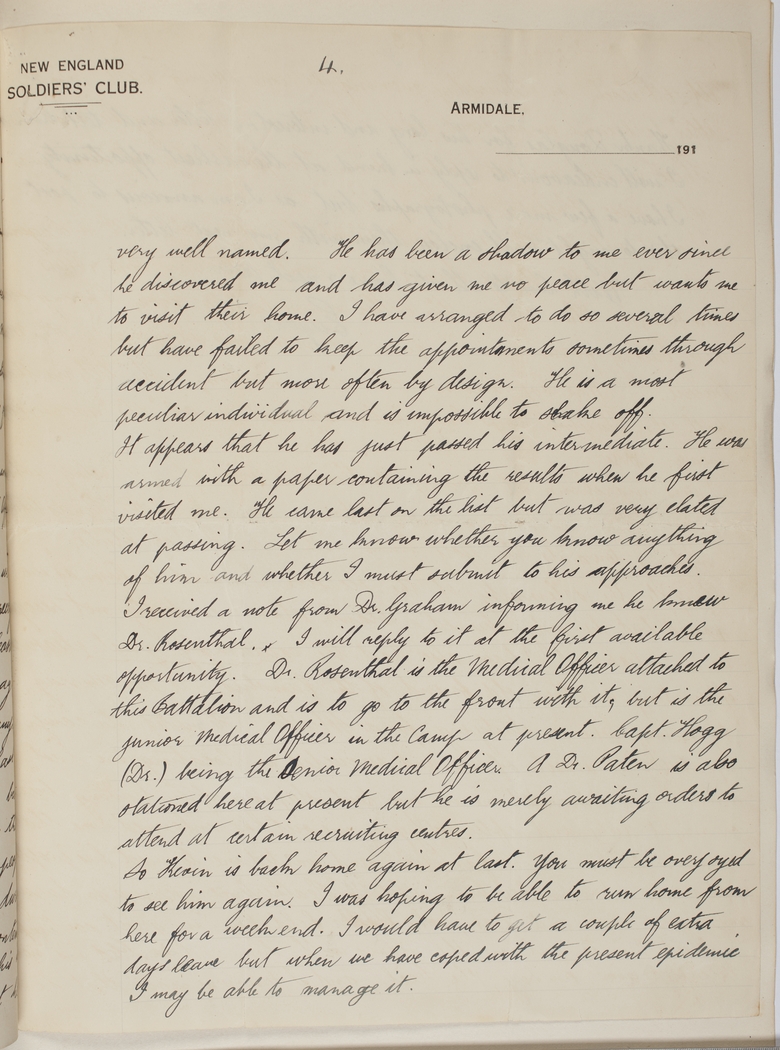 NEW ENGLAND
SOLDIERS' CLUB.
4.
ARMIDALE.
191
very well named. He has been a shadow to me ever since
he discovered me and has given me no peace but wants me
to visit their home. I have arranged to do so several times
but have failed to keep the appointments sometimes through
accident but more often by design. He is a most
peculiar individual and is impossible to shake off.
It appears that he has just passed his intermediate. He was
armed with a paper containing the results when he first
visited me. He came last on the list but was very elated
at passing. Let me know whether you know anything
of him and whether I must submit to his approaches.
I received a note from Dr. Graham informing me he knew
Dr. Rosenthal. I will reply to it at the first available
opportunity. Dr. Rosenthal is the Medical Officer attached to
this Battalion and is to go to the front with it, but is the
junior Medical Officer in the Camp at present. Capt. Hogg
(Dr.) being the Senior Medical Officer. A Dr. Paten is also
stationed here at present but he is merely awaiting orders to
attend at certain recruiting centres.
So Kevin is back home again at last. You must be overjoyed
to see him again. I was hoping to be able to run home from
here for a week end. I would have to get a couple of extra
days leave but when we have coped with the present epidemic
I may be able to manage it.